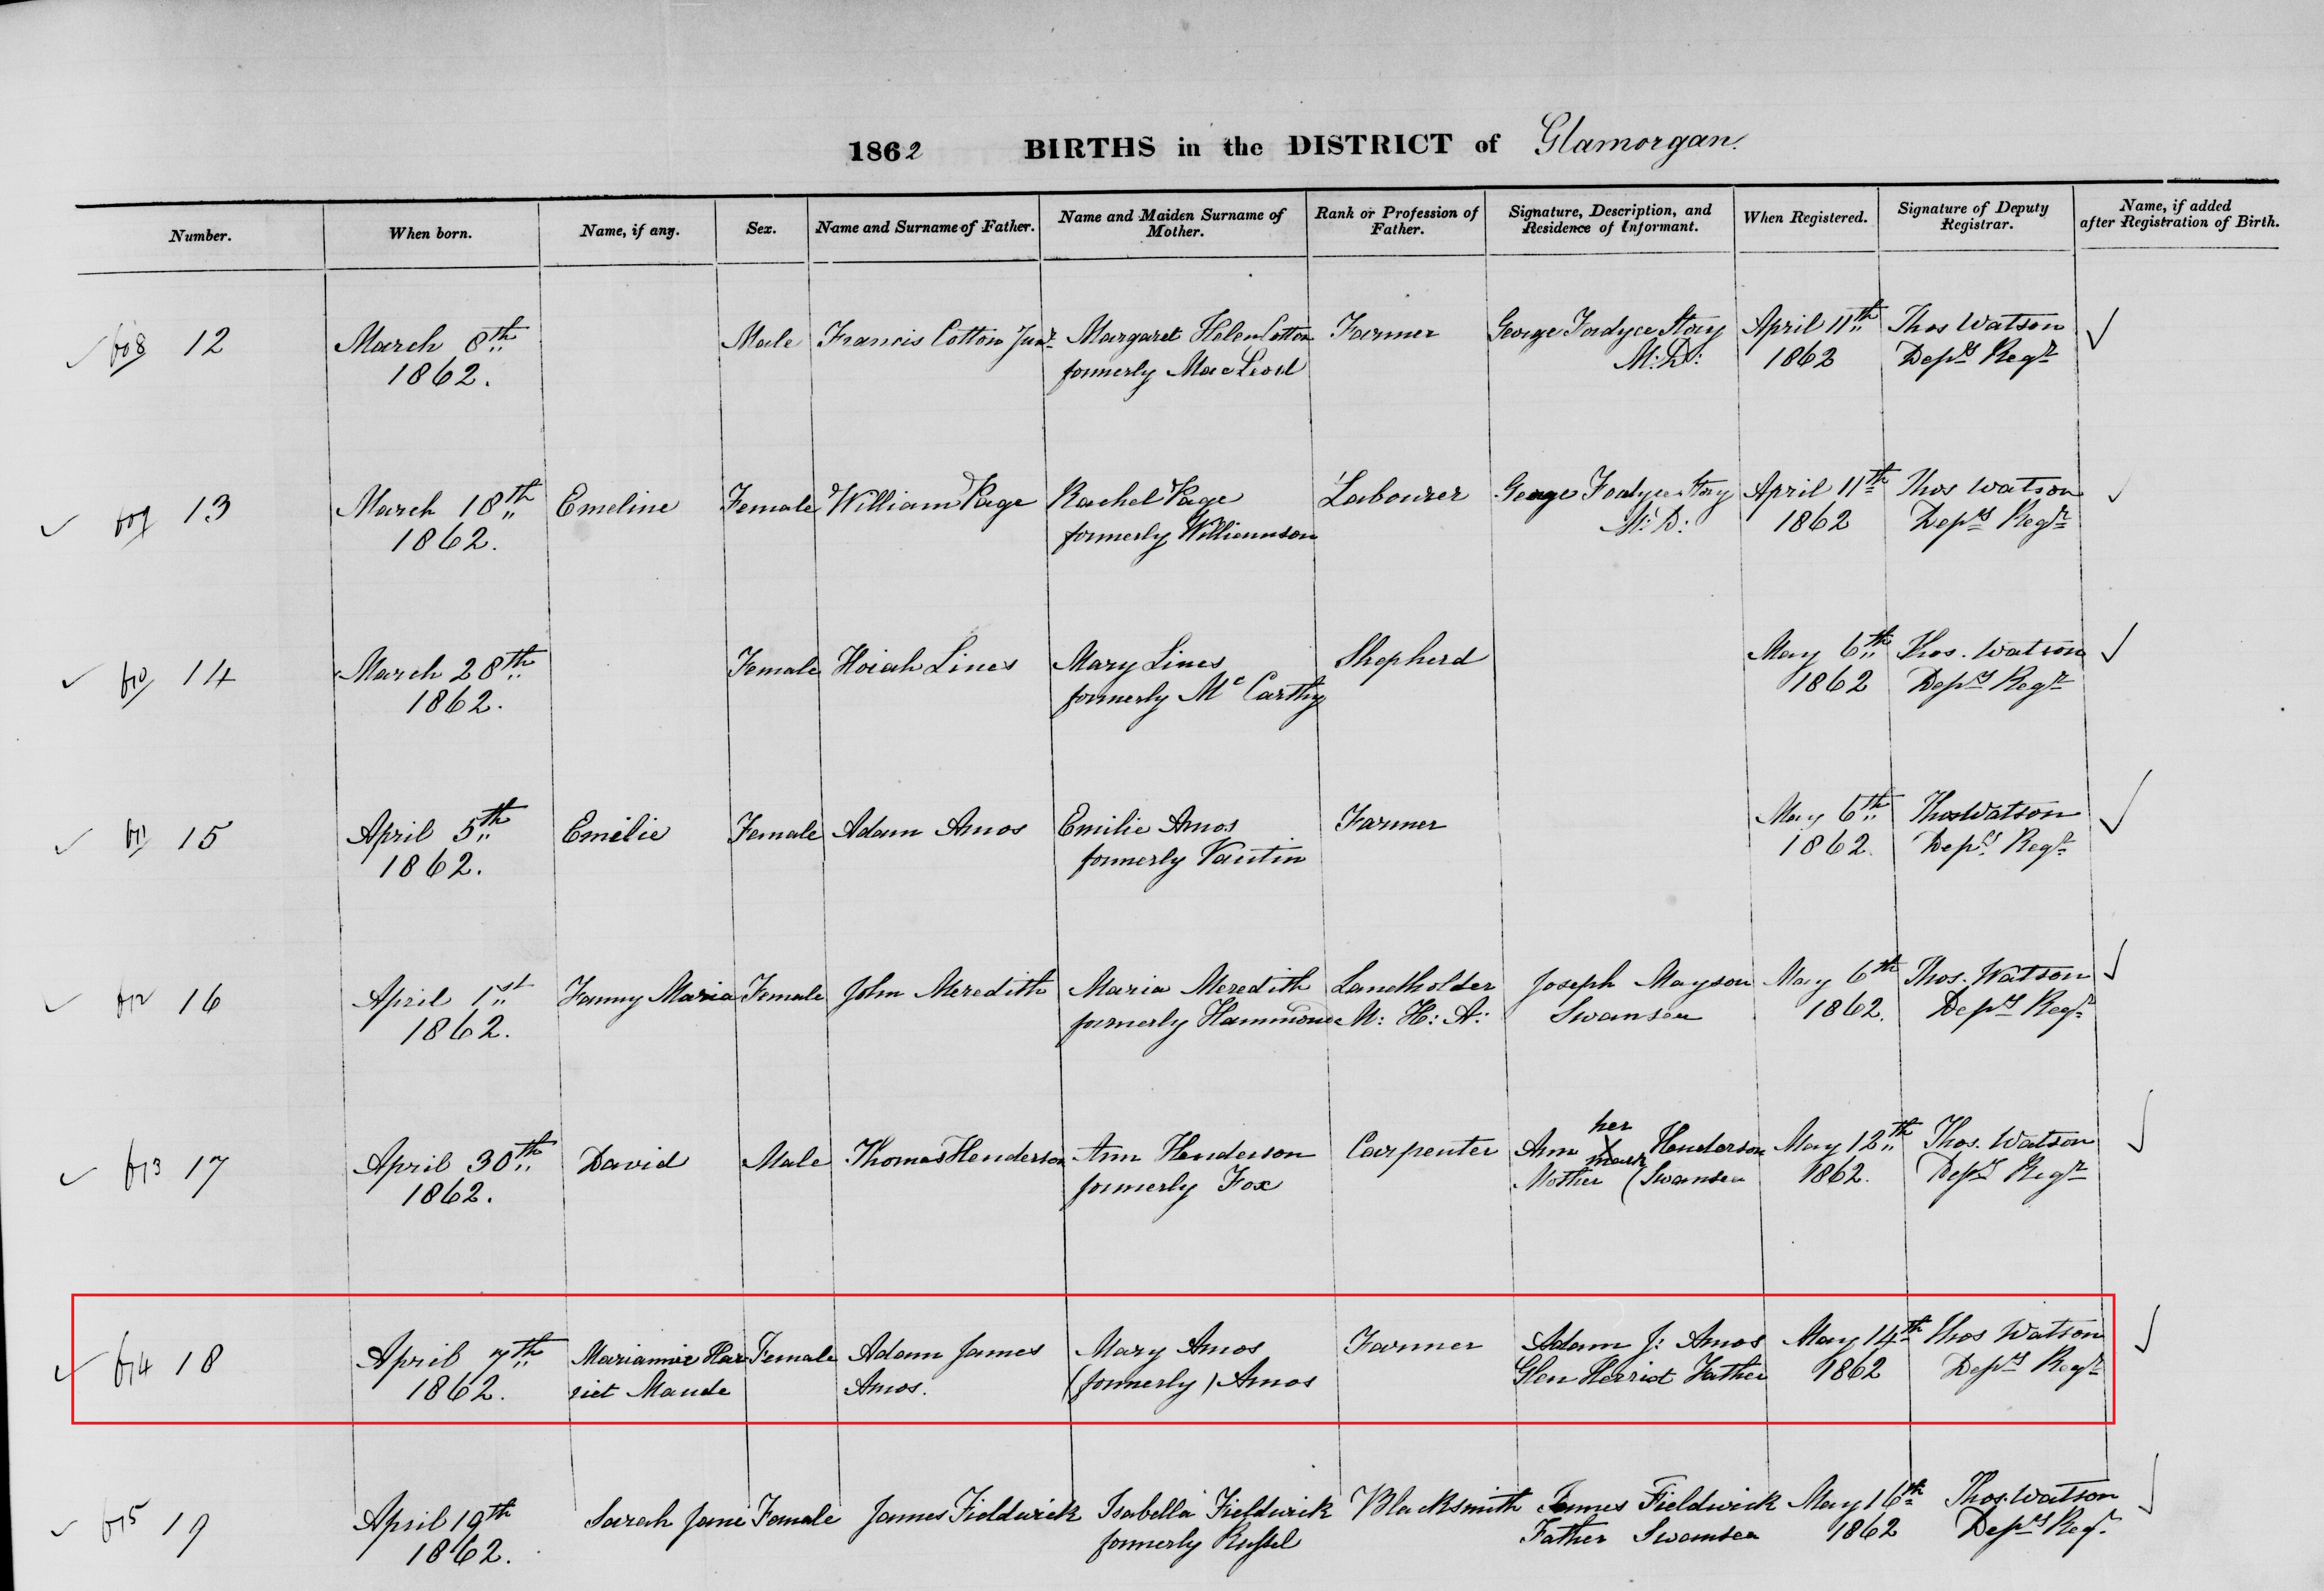 1862 BIRTHS in the DISTRICT of Glamorgan.
Number. When born. Name, if any. Sex. Name and Surname of Father. Name and Maiden Surname of Mother. Rank or Profession of Father. Signature, Description, and Residence of Informant. When Registered. Signature of Deputy Registrar. Name, if added after Registration of Birth.
608 12 March 8th Male Francis Cotton Junr Margaret Helen Cotton Farmer George Fordyce Story April 11th Thos Watson
1862. formerly MacLeod M:D: 1862 Depy Regr
609 13 March 18th Emeline Female William Page Rachel Page Labourer George Fordyce Story April 11th Thos Watson
1862. formerly Williamson M:D: 1862 Depy Regr
610 14 March 28th Female Hoiah Lines Mary Lines Shepherd May 6th Thos. Watson
1862. formerly Mc Carthy 1862 Depy Regr
611 15 April 5th Emilie Female Adam Amos Emilie Amos Farmer May 6th Thos Watson
1862. formerly Vautin 1862. Depy Regr
612 16 April 1st Fanny Maria Female John Meredith Maria Meredith Landholder Joseph Mayson May 6th Thos. Watson
1862. formerly Hammond M: H: A: Swansea 1862. Depy Regr
613 17 April 30th David Male Thomas Henderson Ann Henderson Carpenter Ann her X mark Henderson May 12th Thos. Watson
1862. formerly Fox Mother Swansea 1862. Depy Regr
614 18 April 7th Mariannie Har Female Adam James Mary Amos Farmer Adam J: Amos May 14th Thos Watson
1862. riet Maude Amos. (formerly) Amos Glen Herriot Father 1862 Depy Regr
615 19 April 19th Sarah Jane Female James Fieldwick Isabella Fieldwick Blacksmith James Fieldwick May 16th Thos. Watson
1862. formerly Russel Father Swansea 1862 Depy Regr